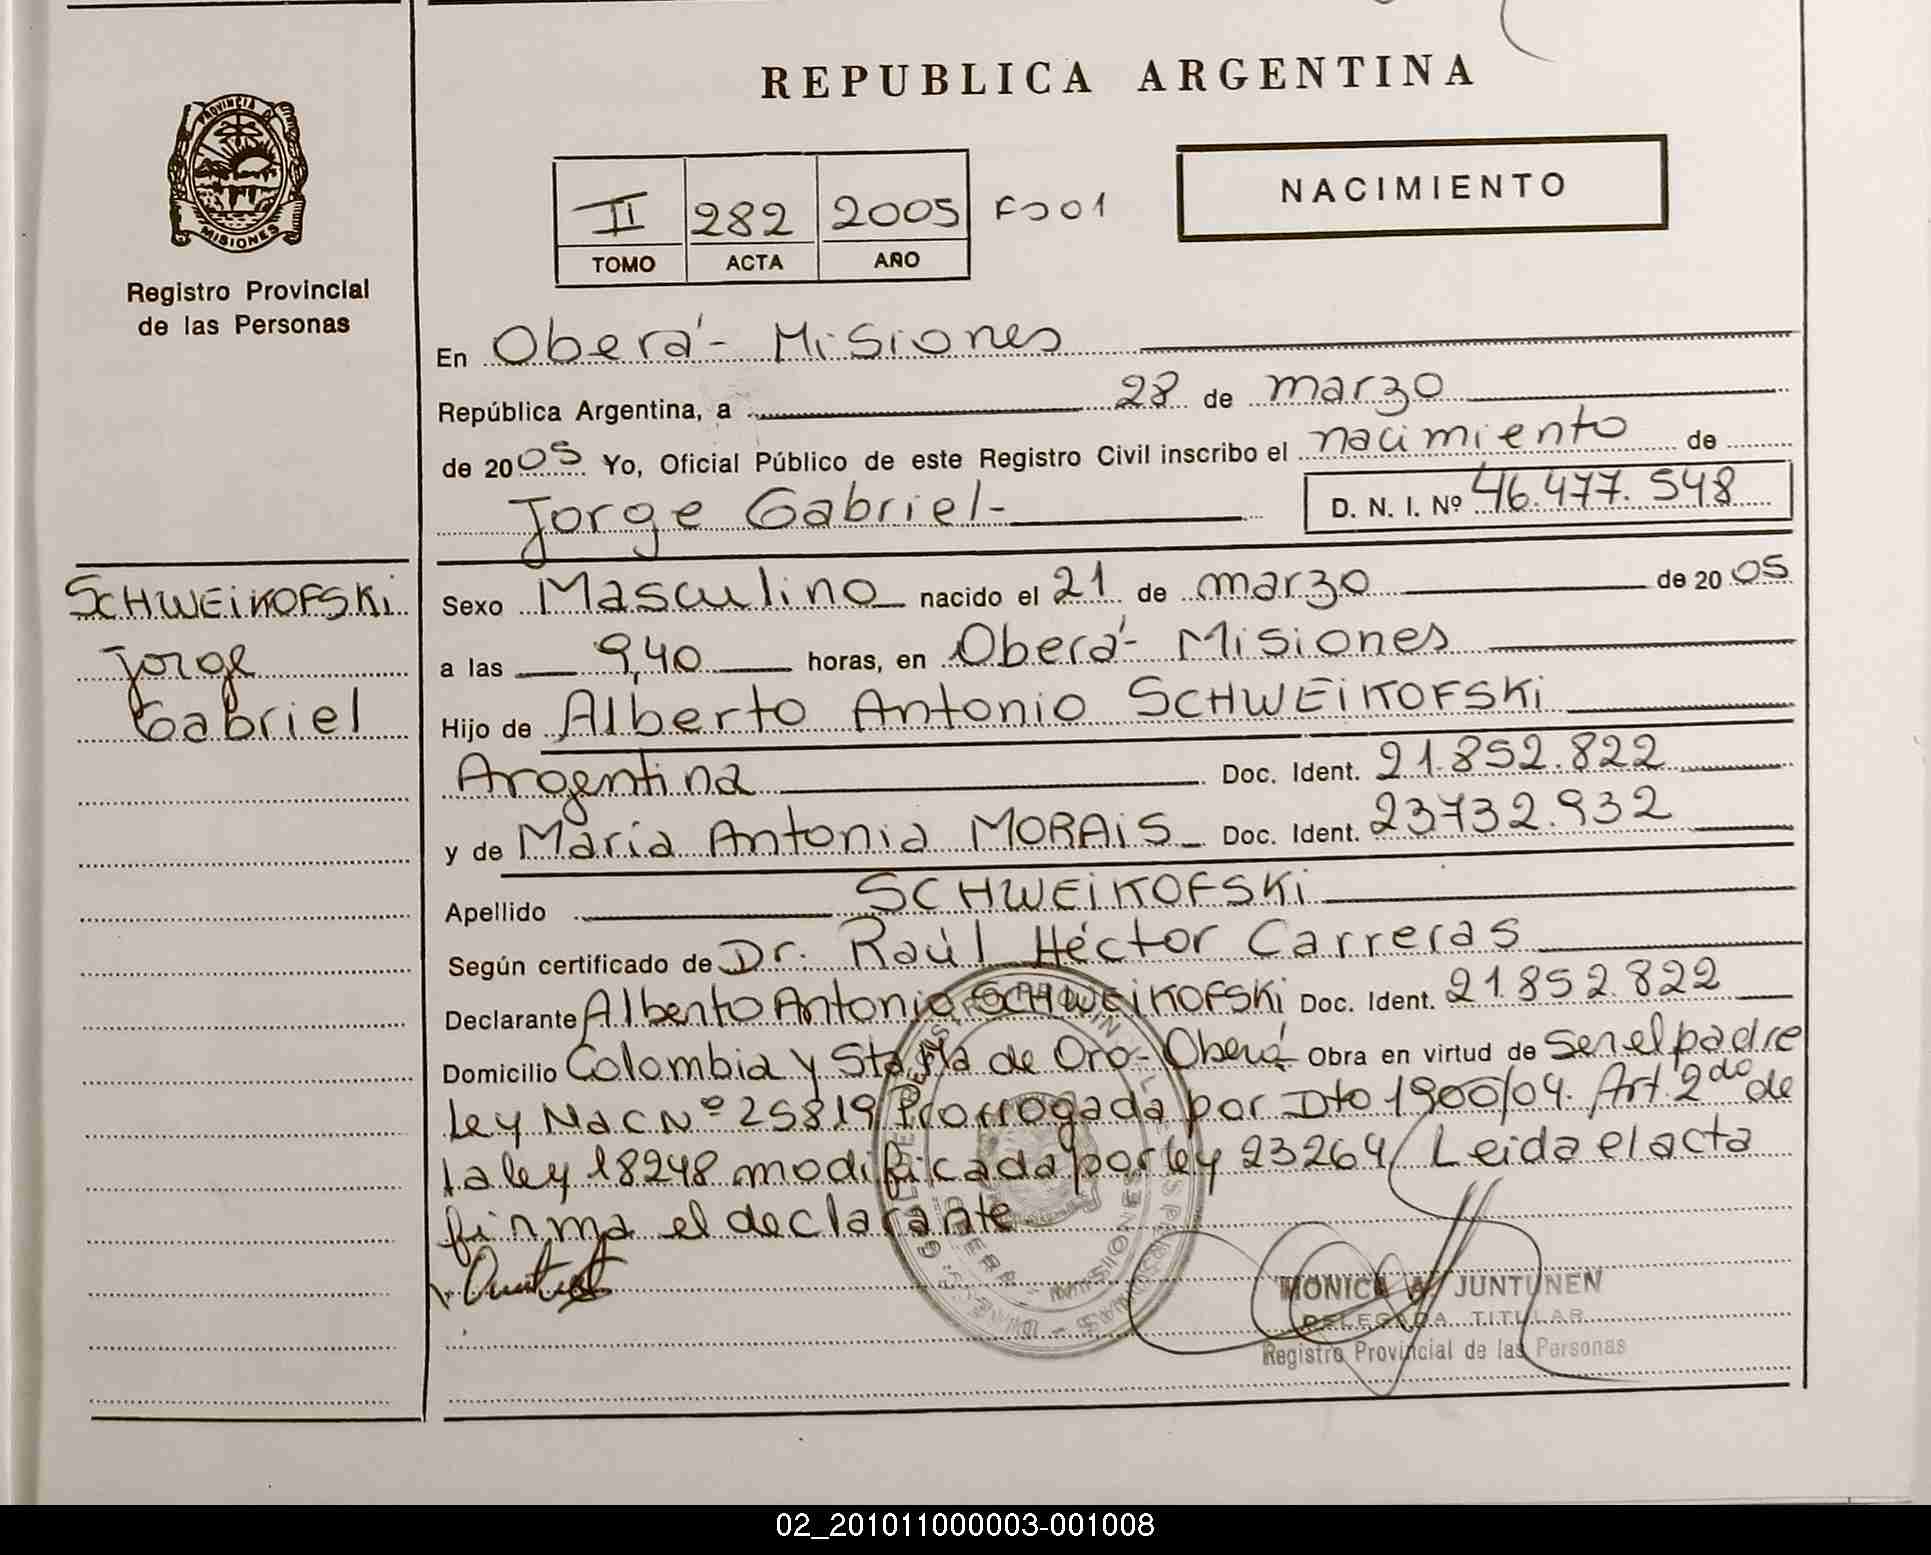 REPUBLICA ARGENTINA
PROVINCIA DE
MISIONES
Registro Provincial
de las Personas
II 282 2005 Fº 01
TOMO ACTA AÑO
NACIMIENTO
En Oberá - Misiones
República Argentina, a 28 de marzo
de 2005 Yo, Oficial Público de este Registro Civil inscribo el nacimiento de
Jorge Gabriel- D. N. I. Nº 46.477.548
SCHWEiKOFSKi
Jorge
Gabriel
Sexo Masculino nacido el 21 de marzo de 2005
a las 9,40 horas, en Oberá - Misiones
Hijo de Alberto Antonio SCHWEiKOFSKi
Argentina Doc. Ident. 21.852.822
y de María Antonia MORAiS Doc. Ident. 23732.932
Apellido SCHWEiKOFSKi
Según certificado de Dr. Raúl Héctor Carreras
Declarante Alberto Antonio SCHWEiKOFSKi Doc. Ident. 21.852.822
Domicilio Colombia y Sta Fla de Oro - Oberá Obra en virtud de ser el padre
Ley Nac Nº 25819 Prorrogada por Dto 1900/04. Art. 2do de
la ley 18248 modificada por ley 23264/ Leida el acta
firma el declarante
MONICA A. JUNTUNEN
DELEGADA TITULAR
Registro Provincial de las Personas
02_201011000003-001008